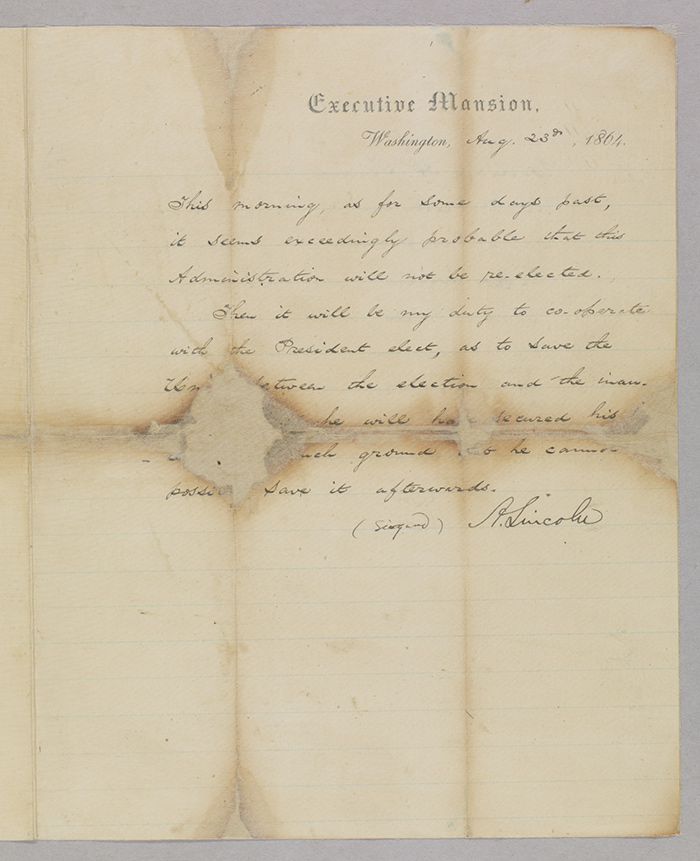 Executive Mansion,
Washington, Aug. 23d, 1864.
This morning, as for some days past,
it seems exceedingly probable that this
Administration will not be re-elected.
Then it will be my duty to co-operate
with the President elect, as to save the
between the election and the inau-
he will have secured his
such ground he cannot
save it afterwards.
(Signed) A. Lincoln